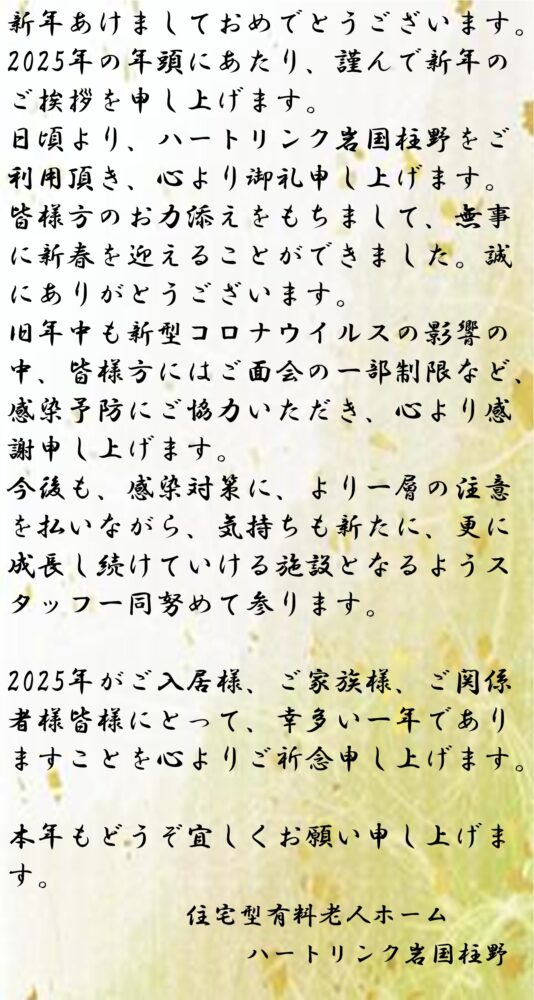 新年あけましておめでとうございます。
2025年の年頭にあたり、謹んで新年の
ご挨拶を申し上げます。
日頃より、ハートリンク岩国柱野をご
利用頂き、心より御礼申し上げます。
皆様方のお力添えをもちまして、無事
に新春を迎えることができました。誠
にありがとうございます。
旧年中も新型コロナウイルスの影響の
中、皆様方にはご面会の一部制限など、
感染予防にご協力いただき、心より感
謝申し上げます。
今後も、感染対策に、より一層の注意
を払いながら、気持ちも新たに、更に
成長し続けていける施設となるようス
タッフ一同努めて参ります。
2025年がご入居様、ご家族様、ご関係
者様皆様にとって、幸多い一年であり
ますことを心よりご祈念申し上げます。
本年もどうぞ宜しくお願い申し上げま
す。
住宅型有料老人ホーム
ハートリンク岩国柱野